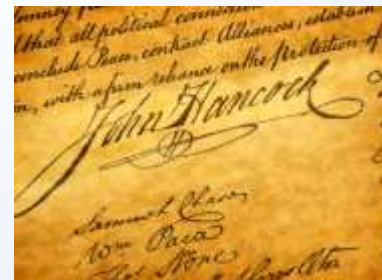 that all political connection
conclude Peace, contract Alliances, establish
on, with a firm reliance on the Protection of
John Hancock
Samuel Chase
Wm Paca
Thos Stone